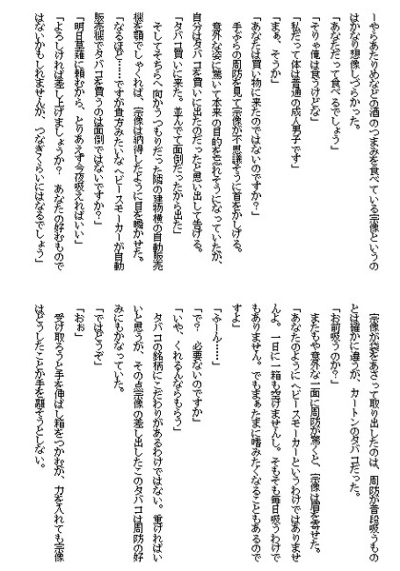 ーやらあたりめなどの酒のつまみを食べている宗像というの
はかなり想像しづらかった。
「あなただって食べるでしょう」
「そりゃ俺は食うけどな」
「私だって体は普通の成人男子です」
「まぁ、そうか」
「あなたは買い物に来たのではないのですか？」
手ぶらの周防を見て宗像が不思議そうに首をかしげる。
意外な姿に驚いて本来の目的を忘れそうになっていたが、
自分はタバコを買いに出たのだったと思い出して告げる。
「タバコ買いに来た。並んでて面倒だったから出た」
そしてそちらへ向かうつもりだった隣の建物横の自動販売
機を顎でしゃくれば、宗像は納得したように目を瞬かせた。
「なるほど……ですが貴方みたいなヘビースモーカーが自動
販売機でタバコを買うのは面倒ではないですか？」
「明日草薙に頼むから、とりあえず今夜吸えればいい」
「よろしければ差し上げましょうか？　あなたの好むもので
はないかもしれませんが、つなぎくらいにはなるでしょう」
宗像が袋をあさって取り出したのは、周防が普段吸うもの
とは確かに違うが、カートンのタバコだった。
「お前吸うのか？」
またもや意外な一面に周防が驚くと、宗像は眉を寄せた。
「あなたのようにヘビースモーカーというわけではありませ
んよ。一日に一箱も空けませんし。そもそも毎日吸うわけで
もありません。でもまぁたまに嗜みたくなることもあるので
すよ」
「ふーん……」
「で？　必要ないのですか」
「いや、くれるんならもらう」
タバコの銘柄にこだわりがあるわけではない。重ければい
いと思うが、その点宗像の差し出したこのタバコは周防の好
みにもかなっていた。
「ではどうぞ」
「おぉ」
受け取ろうと手を伸ばし箱をつかむが、力を入れても宗像
はどうしたことか手を離そうとしない。